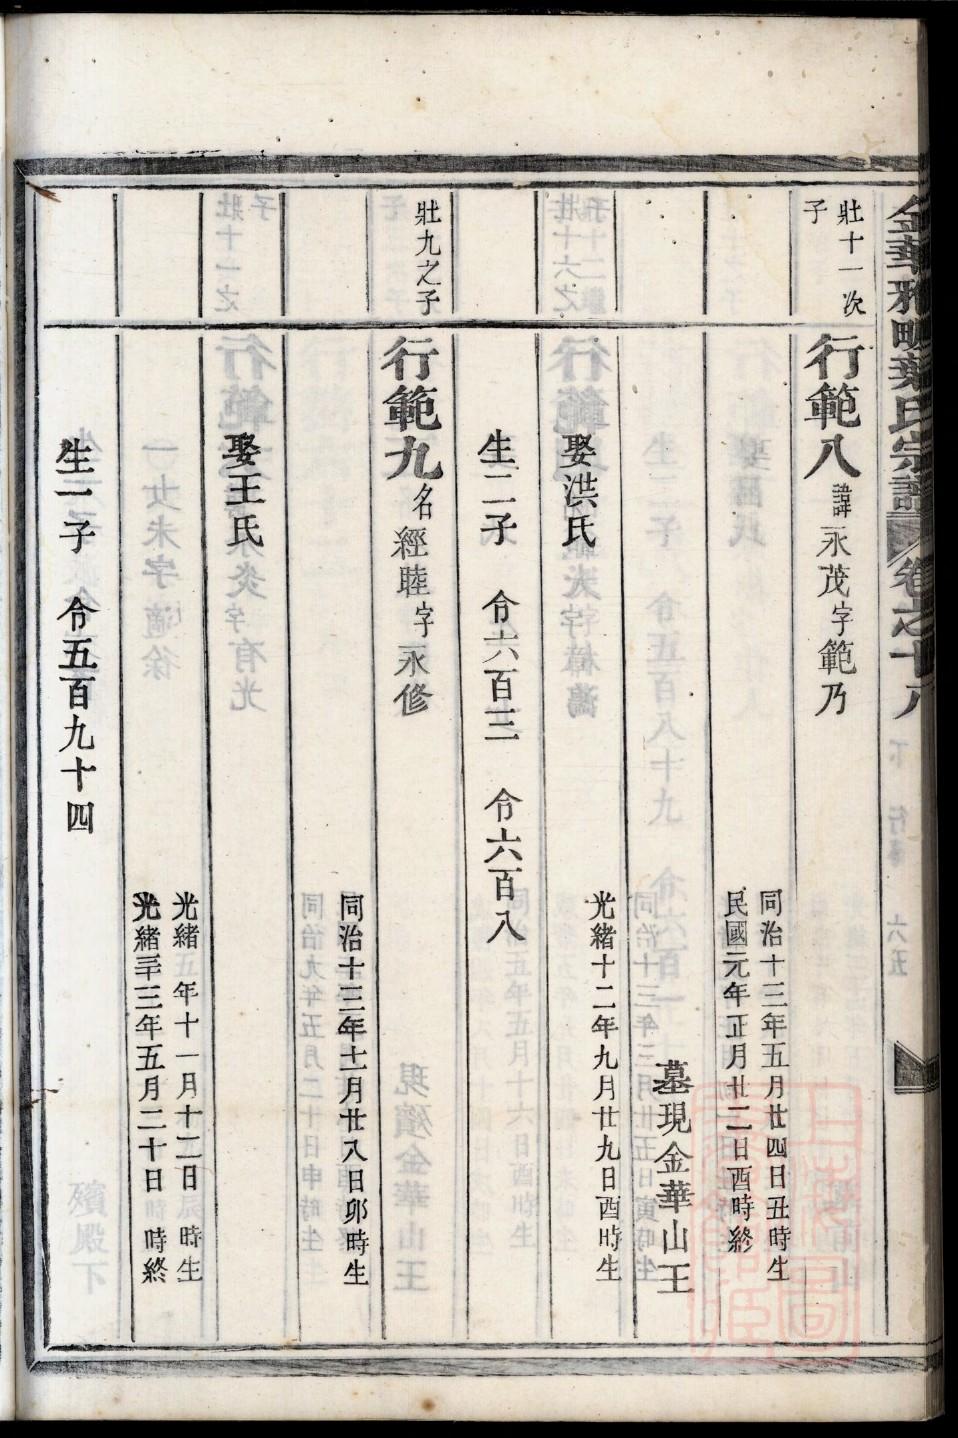 金華雅畈葉氏宗譜 卷之十八 下 行 六五
壯十一次子
行範八 諱永茂字範乃
同治十三年五月廿四日丑時生
民國元年正月廿二日酉時終
墓現金華山王
娶洪氏
光緒十二年九月廿九日酉時生
生二子 令六百三 令六百八
壯九之子
行範九 名經睦字永修
同治十三年十一月廿八日卯時生
娶王氏
光緒五年十一月十二日 時生
光緒三十三年五月二十日 時終
生一子 令五百九十四